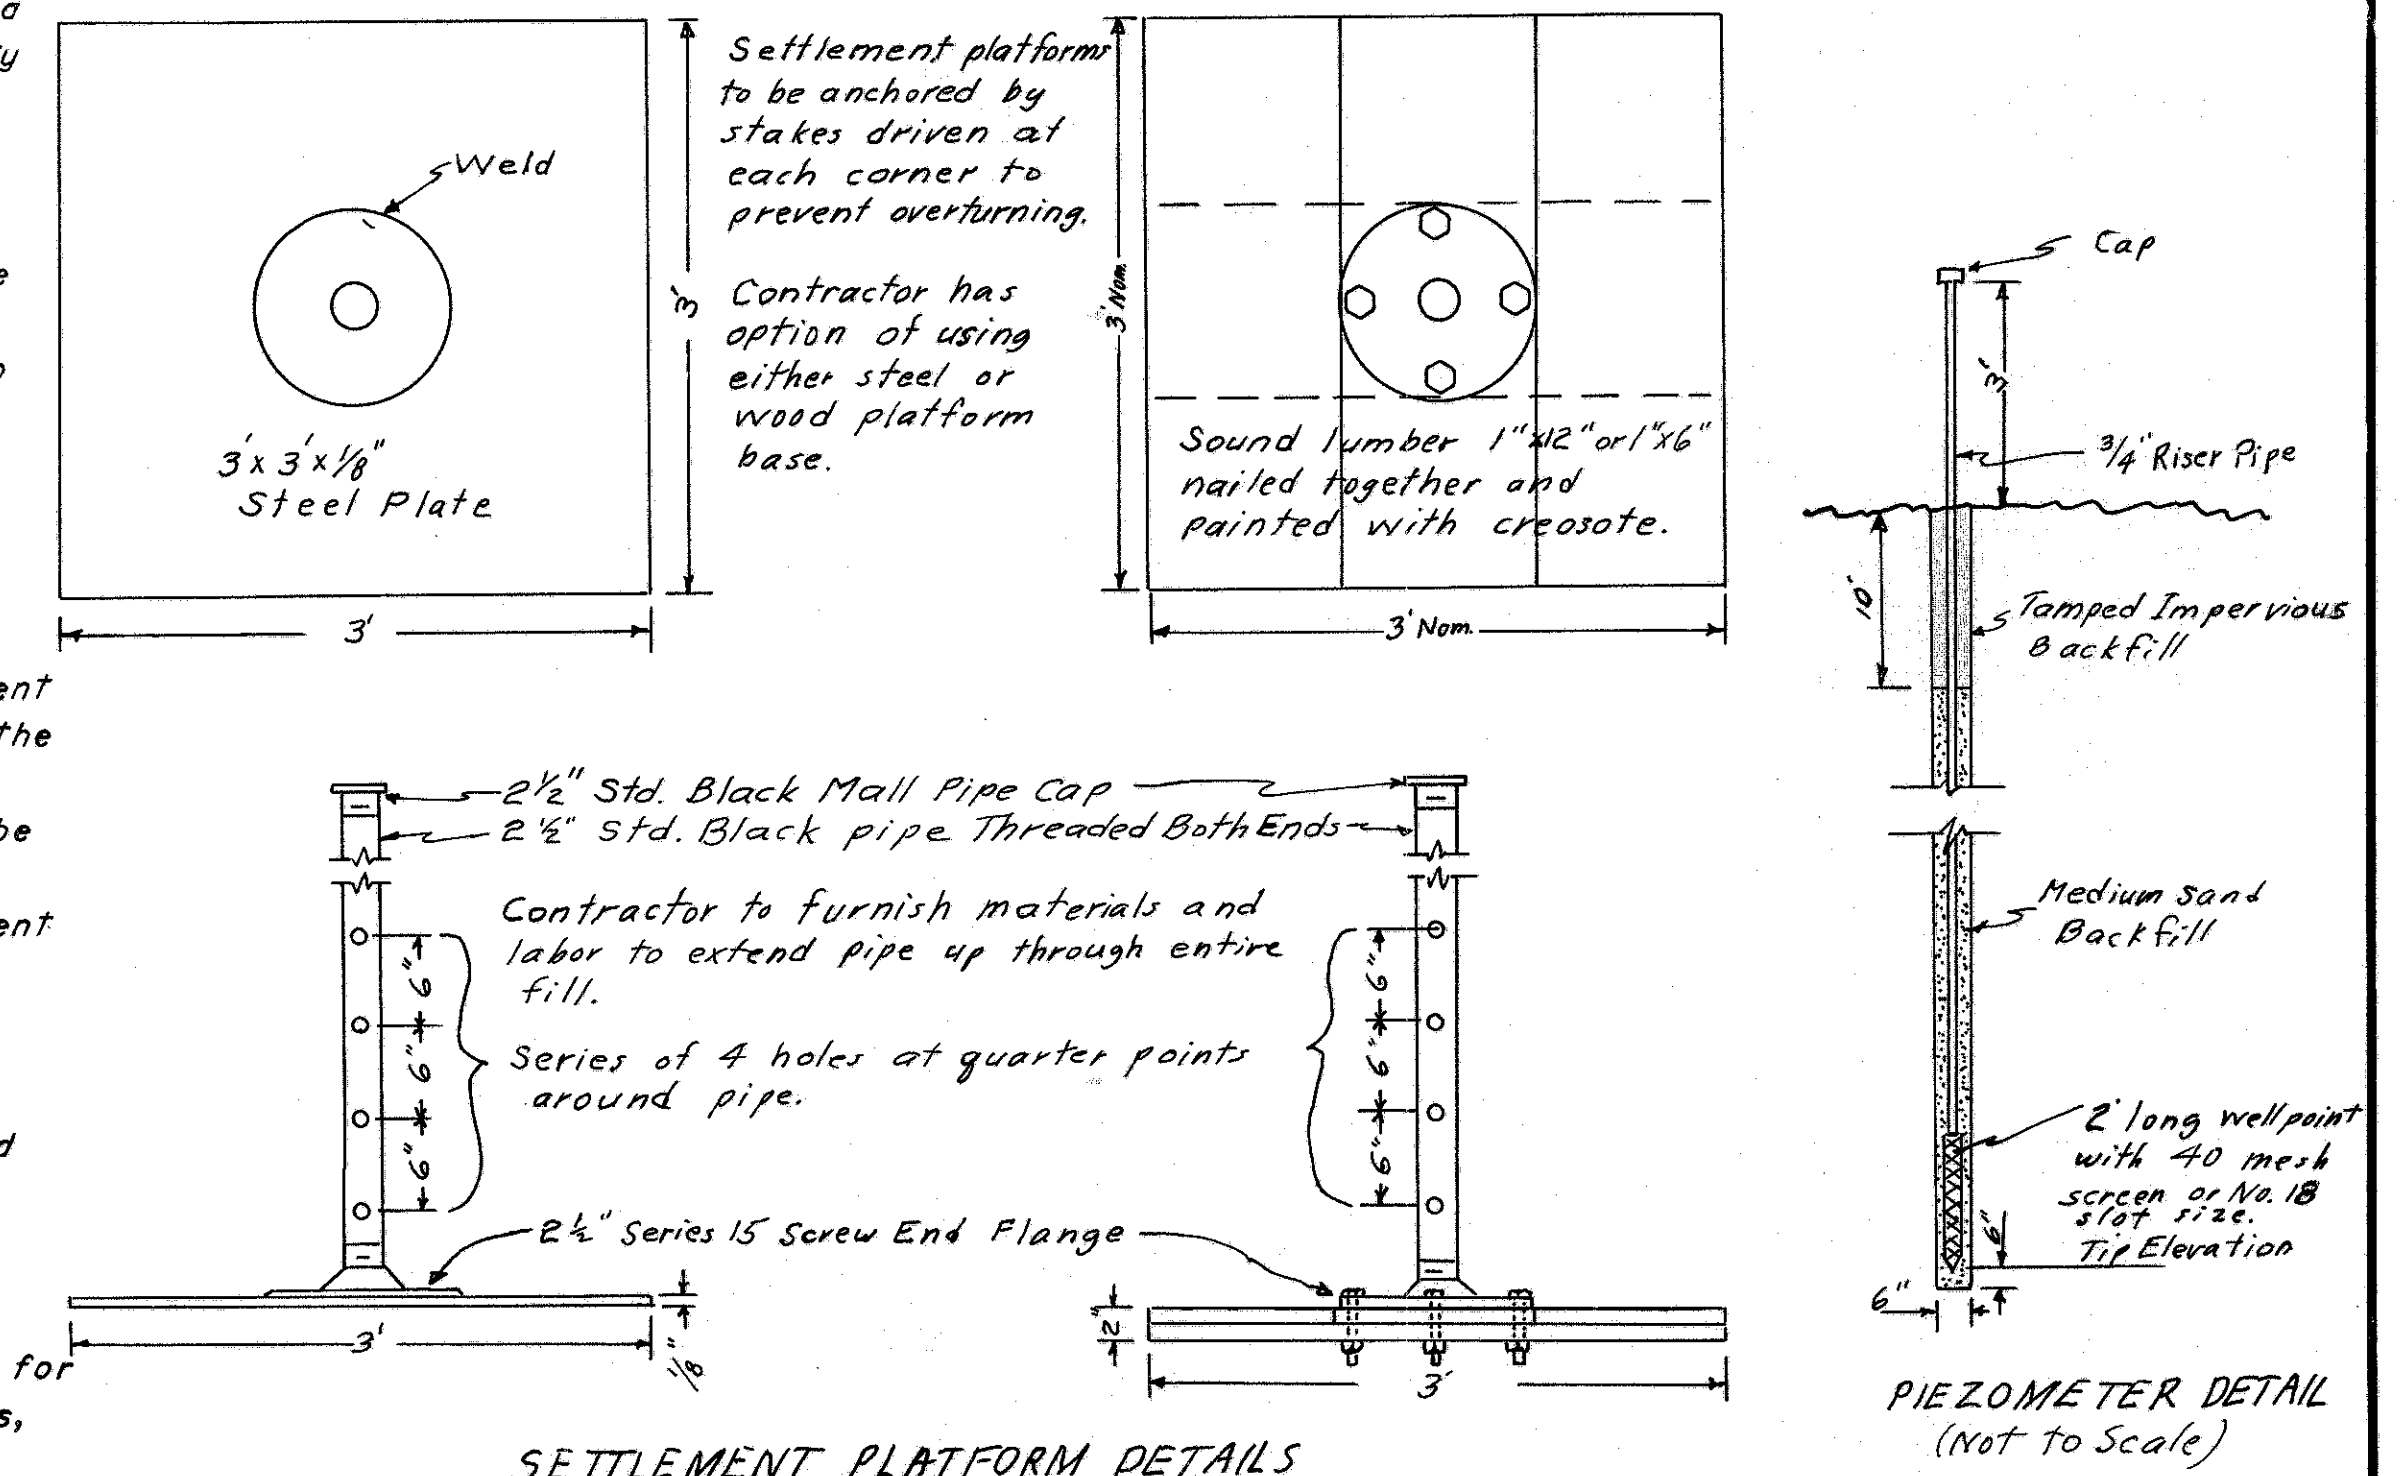 a
y
e
ent
the
be
ent
d
for
s,
Weld
3' x 3' x 1/8"
Steel Plate
3'
3'
Settlement platforms
to be anchored by
stakes driven at
each corner to
prevent overturning.
Contractor has
option of using
either steel or
wood platform
base.
3' Nom.
Sound lumber 1"x12" or 1"x6"
nailed together and
painted with creosote.
3' Nom.
Cap
3'
3/4" Riser Pipe
10'
Tamped Impervious
Backfill
Medium sand
Backfill
2' long wellpoint
with 40 mesh
screen or No. 18
slot size.
Tip Elevation
6"
6"
PIEZOMETER DETAIL
(Not to Scale)
2 1/2" Std. Black Mall Pipe Cap
2 1/2" Std. Black pipe Threaded Both Ends
Contractor to furnish materials and
labor to extend pipe up through entire
fill.
Series of 4 holes at quarter points
around pipe.
6"
6"
6"
6"
6"
6"
2 1/2" Series 15 Screw End Flange
3'
1/8"
2"
3'
SETTLEMENT PLATFORM DETAILS